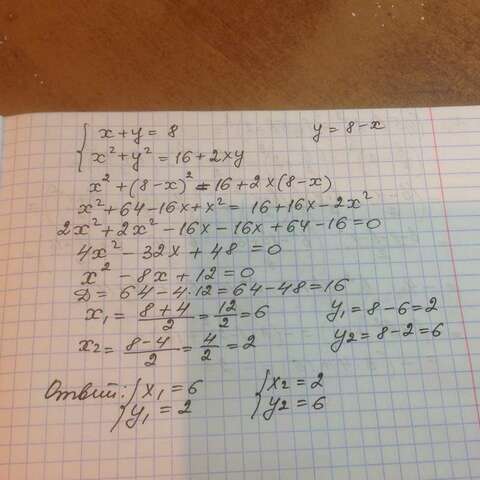 { x + y = 8    y = 8 - x
{ x² + y² = 16 + 2xy
x² + (8-x)² = 16 + 2x(8-x)
x² + 64 - 16x + x² = 16 + 16x - 2x²
2x² + 2x² - 16x - 16x + 64 - 16 = 0
4x² - 32x + 48 = 0
x² - 8x + 12 = 0
D = 64 - 4·12 = 64 - 48 = 16
x₁ = (8+4)/2 = 12/2 = 6    y₁ = 8-6 = 2
x₂ = (8-4)/2 = 4/2 = 2    y₂ = 8-2 = 6
Ответ: { x₁ = 6    { x₂ = 2
{ y₁ = 2    { y₂ = 6